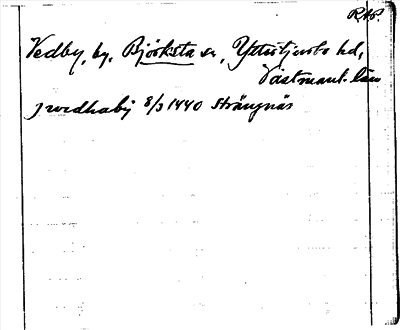 RAP.
Vedby, by, Björksta sn, Yttertjurbo hd,
Västmanl. län
J wedhaby 8/3 1440 Strängnäs